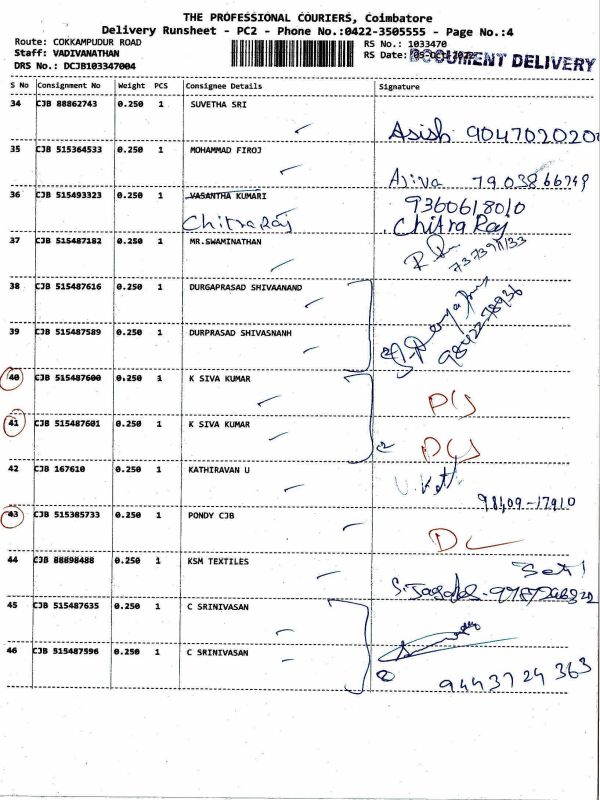 THE PROFESSIONAL COURIERS, Coimbatore
Delivery Runsheet - PC2 - Phone No.:0422-3505555 - Page No.:4
Route: COKKAMPUDUR ROAD RS No.: 1033470
Staff: VADIVANATHAN RS Date: DOCUMENT DELIVERY
DRS No.: DCJB103347004
S No Consignment No Weight PCS Consignee Details Signature
34 CJB 88862743 0.250 1 SUVETHA SRI
Asish 9047020200
35 CJB 515364533 0.250 1 MOHAMMAD FIROJ
7903866749
36 CJB 515493323 0.250 1 VASANTHA KUMARI 9360618010
ChitraRaj ChitraRaj
37 CJB 515487182 0.250 1 MR.SWAMINATHAN
38 CJB 515487616 0.250 1 DURGAPRASAD SHIVAANAND
39 CJB 515487589 0.250 1 DURPRASAD SHIVASNANH
98422-78936
40 CJB 515487600 0.250 1 K SIVA KUMAR
41 CJB 515487601 0.250 1 K SIVA KUMAR
2
42 CJB 167610 0.250 1 KATHIRAVAN U
98409-17910
43 CJB 515385733 0.250 1 PONDY CJB
DL
44 CJB 88898488 0.250 1 KSM TEXTILES
45 CJB 515487635 0.250 1 C SRINIVASAN
46 CJB 515487596 0.250 1 C SRINIVASAN
2 9443724363